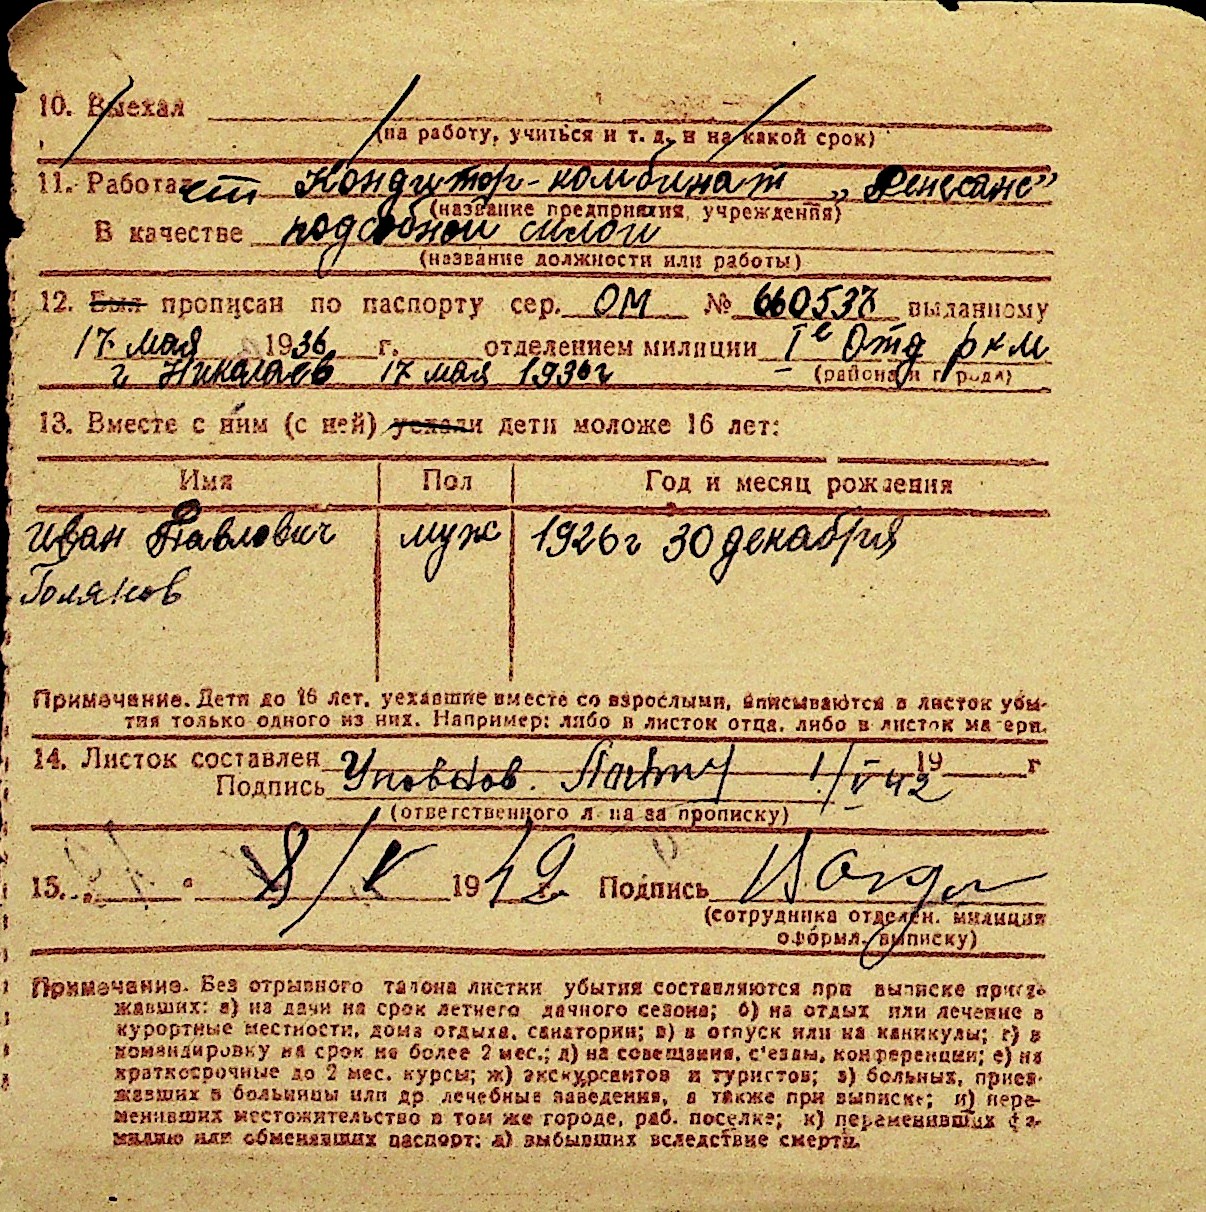 10. Выехал
(на работу, учиться и т. д. и на какой срок)
11. Работает Кондитор-комбинат „Ренесанс”
(название предприятия, учреждения)
В качестве подсобной силои
(название должности или работы)
12. Был прописан по паспорту сер. ОМ № 660537 выданному
17 мая 1936 г. отделением милиции Iе Отд ркм
г Николаев 17 мая 1936 г (района и города)
13. Вместе с ним (с ней) уехали дети моложе 16 лет:
Имя Пол Год и месяц рождения
Иван Павлович муж 1926 г 30 декабря
Голяков
Примечание. Дети до 16 лет, уехавшие вместе со взрослыми, вписываются в листок убы-
тия только одного из них. Например: либо в листок отца, либо в листок матери.
14. Листок составлен 1/V 42 19 г
Подпись
(ответственного лица за прописку)
15. „ “ 8/V 1942 г. Подпись
(сотрудника отделен. милиции
оформл. выписку)
Примечание. Без отрывного талона листки убытия составляются при выписке приез-
жавших: а) на дачи на срок летнего дачного сезона; б) на отдых или лечение в
курортные местности, дома отдыха, санатории; в) в отпуск или на каникулы; г) в
командировку на срок не более 2 мес.; д) на совещания, с'езды, конференции; е) на
краткосрочные до 2 мес. курсы; ж) экскурсантов и туристов; з) больных, приез-
жавших в больницы или др лечебные заведения, а также при выписке; и) пере-
менивших местожительство в том же городе, раб. поселке; к) переменивших фа-
милию или обменявших паспорт; л) выбывших вследствие смерти.